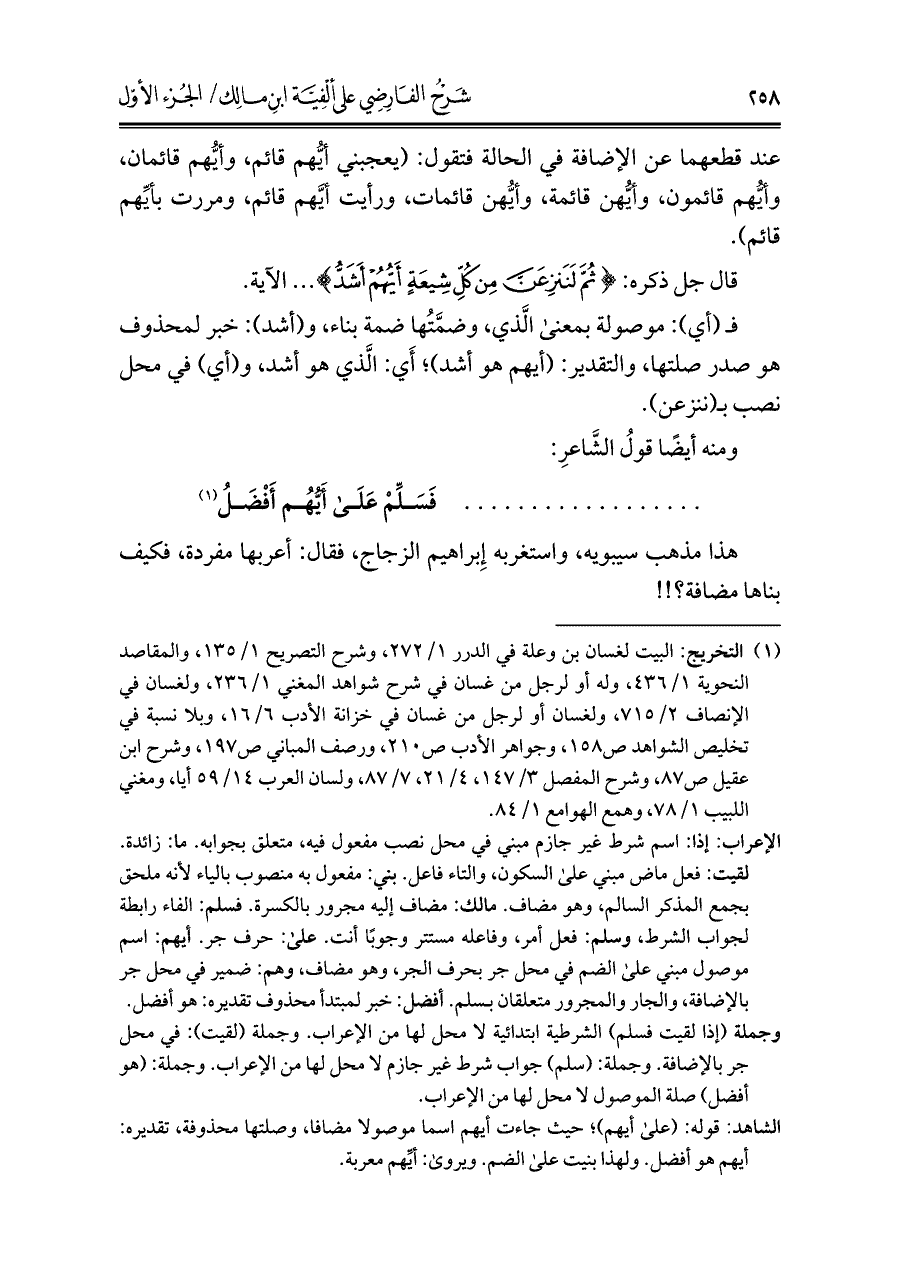 ٢٥٨
شرح الفارضي على ألفية ابن مالك/ الجزء الأول
عند قطعهما عن الإضافة في الحالة فتقول: (يعجبني أيُّهم قائم، وأيُّهم قائمان،
وأيُّهم قائمون، وأيُّهن قائمة، وأيُّهن قائمات، ورأيت أيَّهم قائم، ومررت بأيِّهم
قائم).
قال جل ذكره: ﴿ثُمَّ لَنَنزِعَنَّ مِن كُلِّ شِيعَةٍ أَيُّهُمْ أَشَدُّ﴾... الآية.
فـ (أي): موصولة بمعنىٰ الَّذي، وضمَّتُها ضمة بناء، و(أشد): خبر لمحذوف
هو صدر صلتها، والتقدير: (أيهم هو أشد)؛ أَي: الَّذي هو أشد، و(أي) في محل
نصب بـ(ننزعن).
ومنه أيضًا قولُ الشَّاعرِ:
.................. فَسَـلِّمْ عَلَـىٰ أَيُّهُـم أَفْضَـلُ(١)
هذا مذهب سيبويه، واستغربه إِبراهيم الزجاج، فقال: أعربها مفردة، فكيف
بناها مضافة؟!!
(١) التخريج: البيت لغسان بن وعلة في الدرر ١/ ٢٧٢، وشرح التصريح ١/ ١٣٥، والمقاصد
النحوية ١/ ٤٣٦، وله أو لرجل من غسان في شرح شواهد المغني ١/ ٢٣٦، ولغسان في
الإنصاف ٢/ ٧١٥، ولغسان أو لرجل من غسان في خزانة الأدب ٦/ ١٦، وبلا نسبة في
تخليص الشواهد ص١٥٨، وجواهر الأدب ص٢١٠، ورصف المباني ص١٩٧، وشرح ابن
عقيل ص٨٧، وشرح المفصل ٣/ ١٤٧، ٤/ ٢١، ٧/ ٨٧، ولسان العرب ١٤/ ٥٩ أيا، ومغني
اللبيب ١/ ٧٨، وهمع الهوامع ١/ ٨٤.
الإعراب: إذا: اسم شرط غير جازم مبني في محل نصب مفعول فيه، متعلق بجوابه. ما: زائدة.
لقيت: فعل ماض مبني علىٰ السكون، والتاء فاعل. بني: مفعول به منصوب بالياء لأنه ملحق
بجمع المذكر السالم، وهو مضاف. مالك: مضاف إليه مجرور بالكسرة. فسلم: الفاء رابطة
لجواب الشرط، وسلم: فعل أمر، وفاعله مستتر وجوبًا أنت. علىٰ: حرف جر. أيهم: اسم
موصول مبني علىٰ الضم في محل جر بحرف الجر، وهو مضاف، وهم: ضمير في محل جر
بالإضافة، والجار والمجرور متعلقان بـسلم. أفضل: خبر لمبتدأ محذوف تقديره: هو أفضل.
وجملة (إذا لقيت فسلم) الشرطية ابتدائية لا محل لها من الإعراب. وجملة (لقيت): في محل
جر بالإضافة. وجملة: (سلم) جواب شرط غير جازم لا محل لها من الإعراب. وجملة: (هو
أفضل) صلة الموصول لا محل لها من الإعراب.
الشاهد: قوله: (علىٰ أيهم)؛ حيث جاءت أيهم اسما موصولا مضافا، وصلتها محذوفة، تقديره:
أيهم هو أفضل. ولهذا بنيت علىٰ الضم. ويروىٰ: أيِّهم معربة.